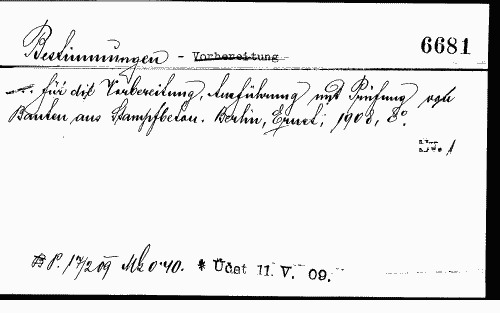 Bestimmungen - Vorbereitung 6681
—. für die Vorbereitung, Ausführung und Prüfung von
Bauten aus Stampfbeton. Berlin, Ernst, 1908, 8°.
P. 17/2 09 Mk 0·40. * Účet 11. V. 09.